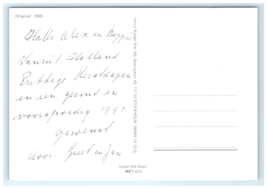 Original 1900
Hallo Alex en
Vanuit Holland
Prettige Kerstdagen
en een gezond en
voorspoedig 199
gewenst
door: Geert en Jan
Good Old Days